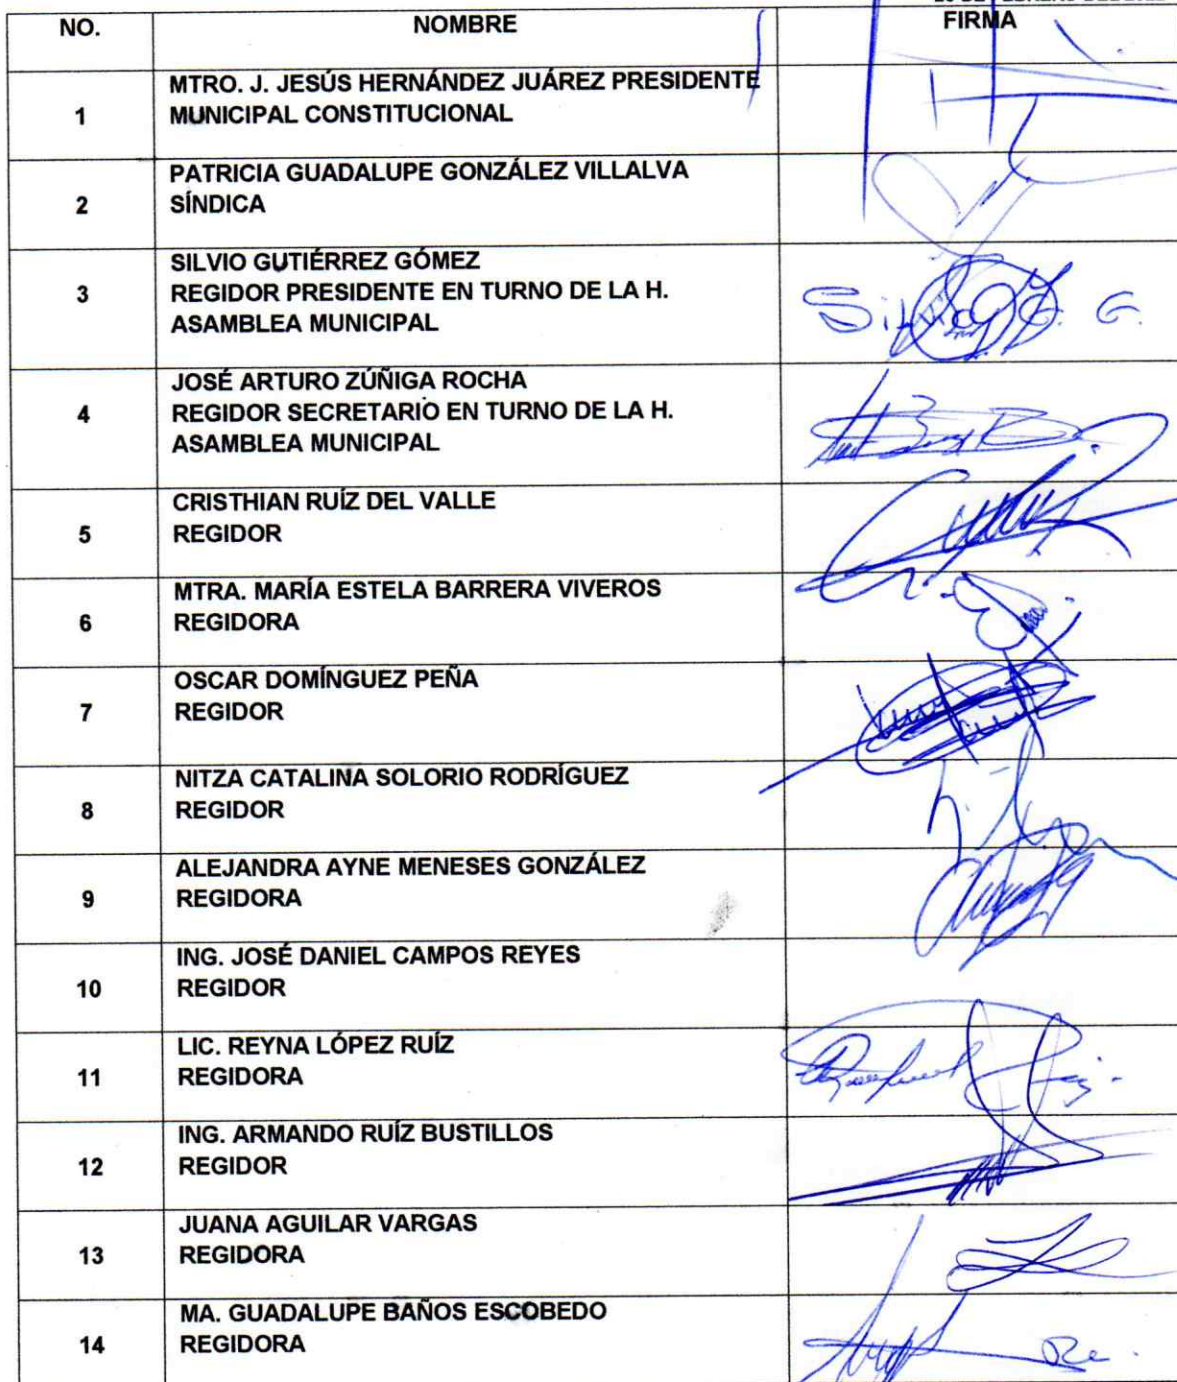 NO. NOMBRE FIRMA
MTRO. J. JESÚS HERNÁNDEZ JUÁREZ PRESIDENTE
1 MUNICIPAL CONSTITUCIONAL
PATRICIA GUADALUPE GONZÁLEZ VILLALVA
2 SÍNDICA
SILVIO GUTIÉRREZ GÓMEZ
3 REGIDOR PRESIDENTE EN TURNO DE LA H.
ASAMBLEA MUNICIPAL
JOSÉ ARTURO ZÚÑIGA ROCHA
4 REGIDOR SECRETARIO EN TURNO DE LA H.
ASAMBLEA MUNICIPAL
CRISTHIAN RUÍZ DEL VALLE
5 REGIDOR
MTRA. MARÍA ESTELA BARRERA VIVEROS
6 REGIDORA
OSCAR DOMÍNGUEZ PEÑA
7 REGIDOR
NITZA CATALINA SOLORIO RODRÍGUEZ
8 REGIDOR
ALEJANDRA AYNE MENESES GONZÁLEZ
9 REGIDORA
ING. JOSÉ DANIEL CAMPOS REYES
10 REGIDOR
LIC. REYNA LÓPEZ RUÍZ
11 REGIDORA
ING. ARMANDO RUÍZ BUSTILLOS
12 REGIDOR
JUANA AGUILAR VARGAS
13 REGIDORA
MA. GUADALUPE BAÑOS ESCOBEDO
14 REGIDORA